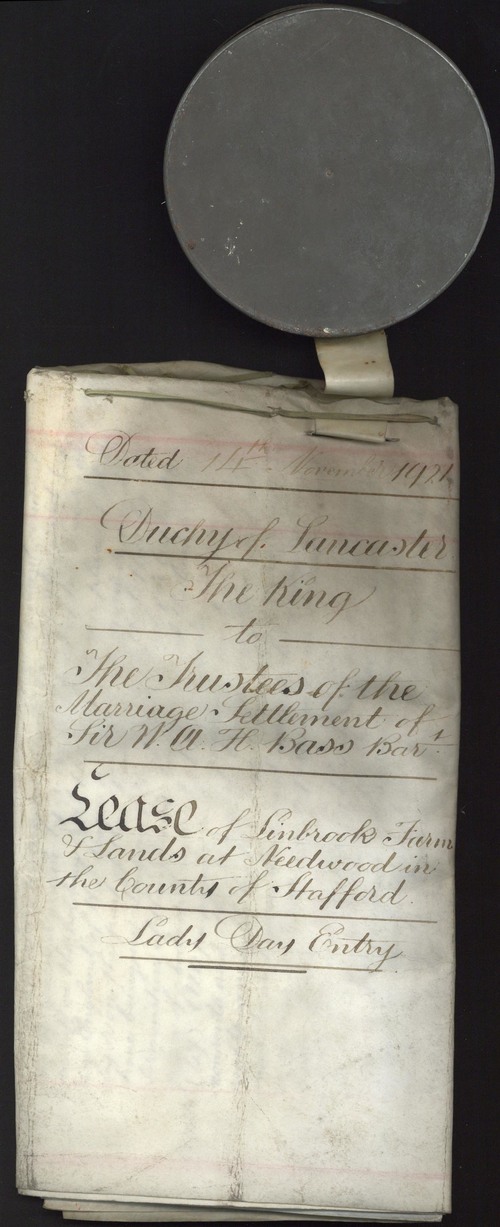 Dated 14th November 1921
Duchy of Lancaster
The King
to
The Trustees of the
Marriage Settlement of
Sir W. A. H. Bass Bart.
Lease of Linbrook Farm
& Lands at Needwood in
the County of Stafford.
Lady Day Entry